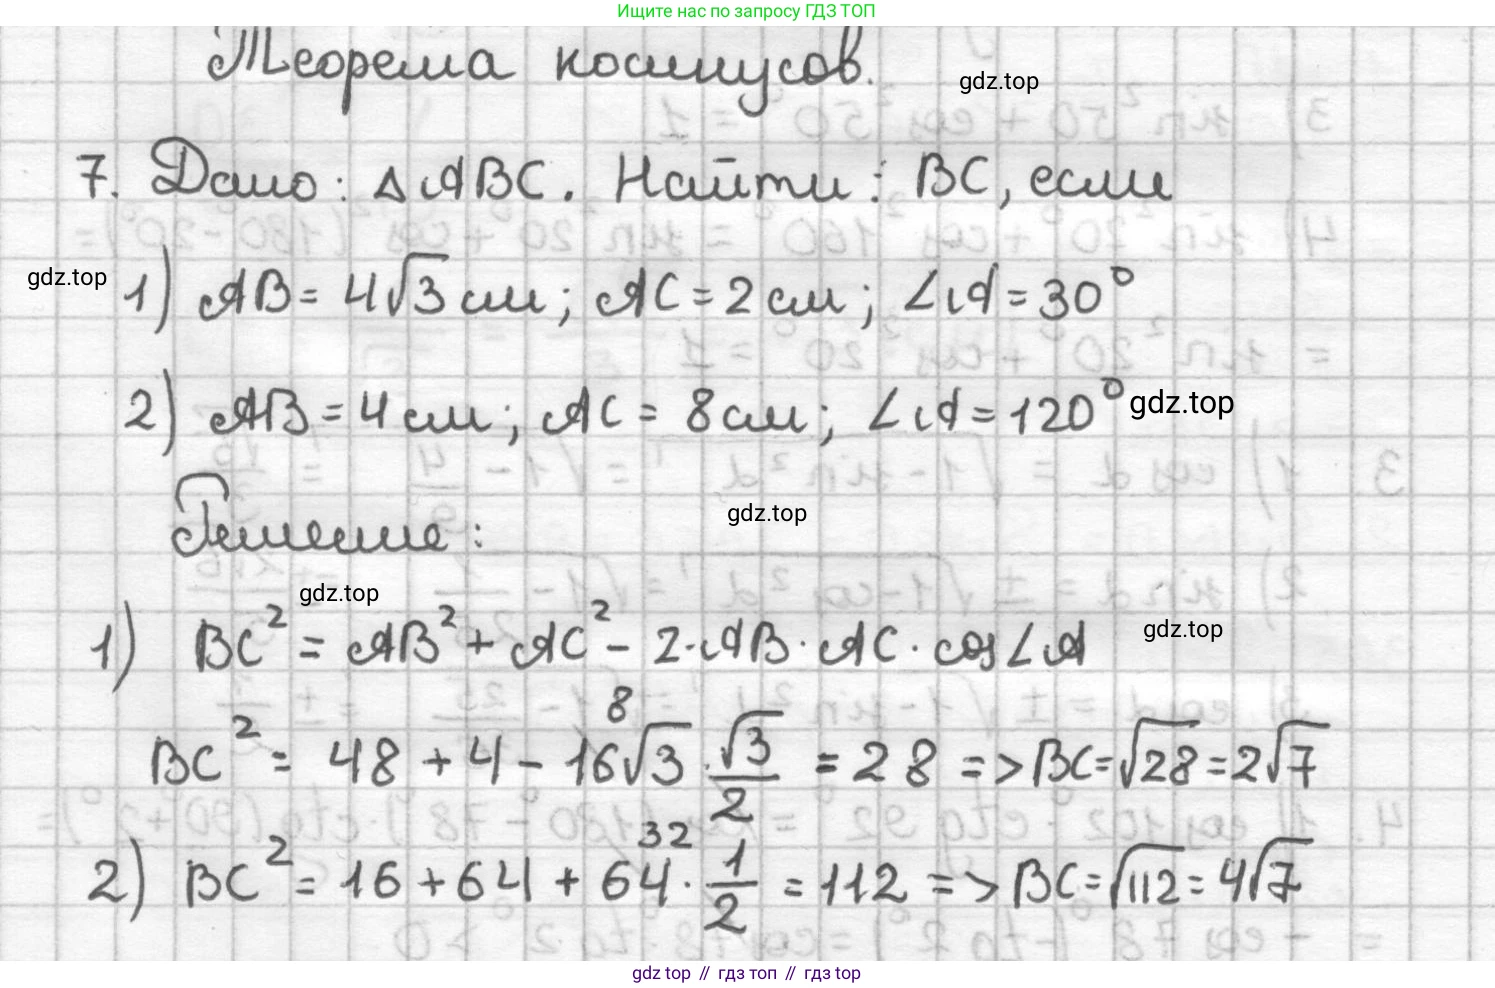 Ищите нас по запросу ГДЗ ТОП
Теорема косинусов.
gdz.top
7. Дано: △ABC. Найти: BC, если
gdz.top
1) AB = 4√3 см; AC = 2 см; ∠A = 30°
2) AB = 4 см; AC = 8 см; ∠A = 120°
gdz.top
Решение:
gdz.top
gdz.top
1) BC² = AB² + AC² - 2·AB·AC·cos∠A
gdz.top
BC² = 48 + 4 - 16√3 · √3/2 = 28 => BC = √28 = 2√7
8
2) BC² = 16 + 64 + 64 · 1/2 = 112 => BC = √112 = 4√7
32
gdz top // гдз топ // гдз top